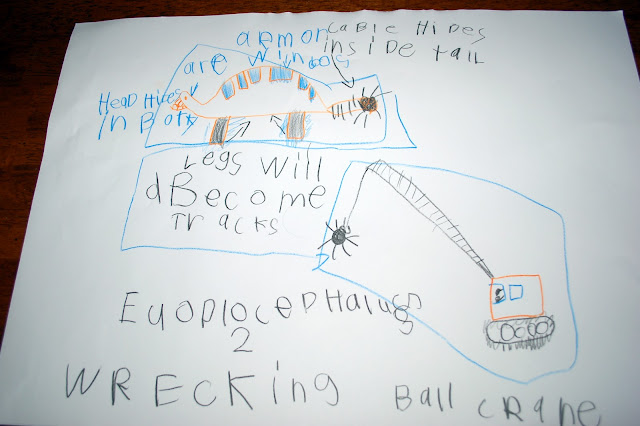 armor
are windos
cable Hides
inside tail
Head Hides
in Body
Legs will
dBecome
Tracks
Euoplocephalugs
2
WRecking
Ball cRane